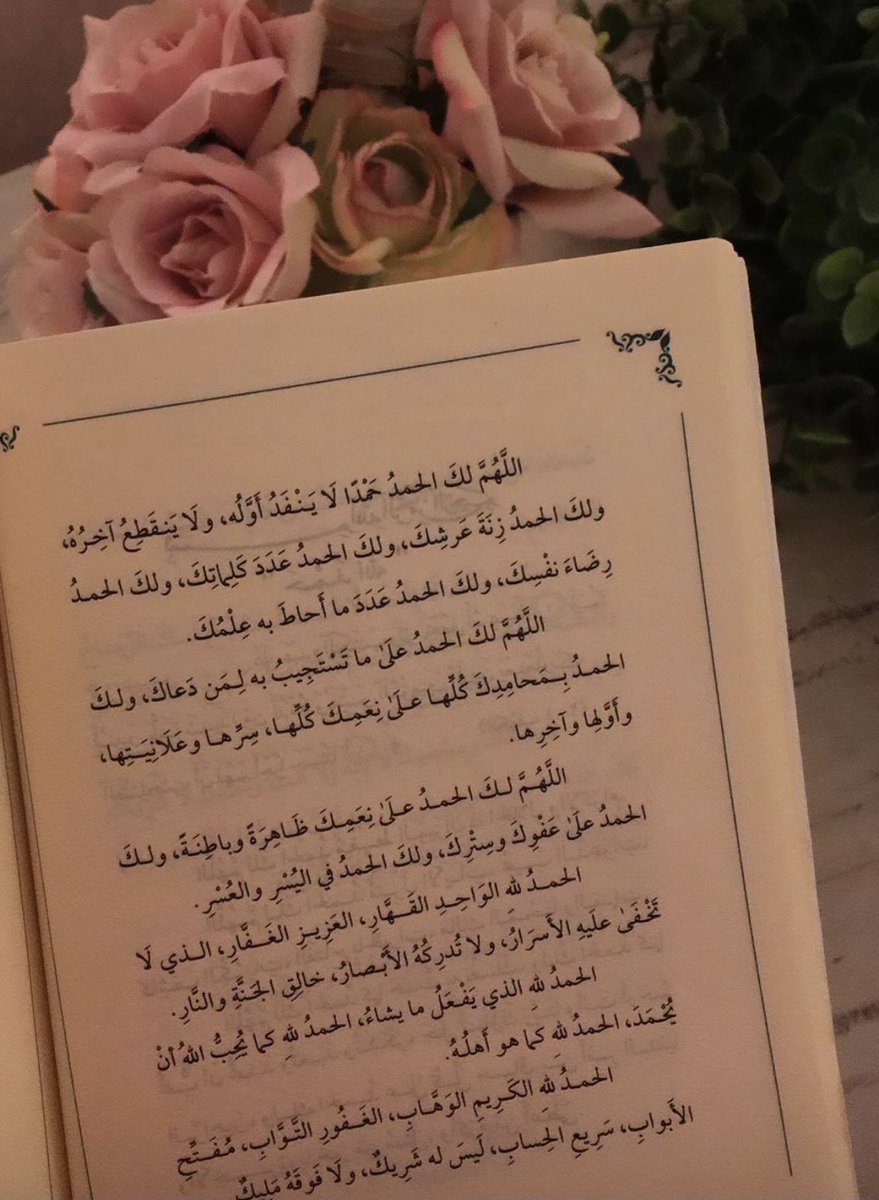 اللَّهُمَّ لكَ الحمدُ حَمْدًا لَا يَنْفَدُ أَوَّلُه، ولَا يَنقَطِعُ آخِرُهُ،
ولكَ الحمدُ زِنَةَ عَرشِكَ، ولكَ الحمدُ عَدَدَ كَلِماتِكَ، ولكَ الحمدُ
رِضَاءَ نفْسِكَ، ولكَ الحمدُ عَدَدَ ما أَحاطَ به عِلْمُكَ.
اللَّهُمَّ لكَ الحمدُ علَىٰ ما تَسْتَجِيبُ به لِمَن دَعاكَ، ولكَ
الحمدُ بِمَحامِدِكَ كُلِّها علَىٰ نِعَمِكَ كُلِّها، سِرِّها وعَلَانِيَتِها،
وأَوَّلِها وآخِرِها.
اللَّهُمَّ لكَ الحمدُ علَىٰ نِعَمِكَ ظَاهِرَةً وباطِنَةً، ولكَ
الحمدُ علَىٰ عَفْوِكَ وسِتْرِكَ، ولكَ الحمدُ في اليُسْرِ والعُسْرِ.
الحمدُ للهِ الوَاحِدِ القَهَّارِ، العَزِيزِ الغَفَّارِ، الذي لَا
تَخْفَىٰ علَيهِ الأَسرَارُ، ولا تُدرِكُهُ الأَبْصارُ، خالِقِ الجَنَّةِ والنَّارِ.
الحمدُ للهِ الذي يَفْعَلُ ما يشاءُ، الحمدُ للهِ كما يُحِبُّ اللهُ أنْ
يُحْمَدَ، الحمدُ للهِ كما هو أَهلُهُ.
الحمدُ للهِ الكَرِيمِ الوَهَّابِ، الغَفُورِ التَّوَّابِ، مُفَتِّحِ
الأَبوابِ، سَرِيعِ الحِسابِ، لَيسَ له شَرِيكٌ، ولَا فَوقَهُ مَلِيكٌ